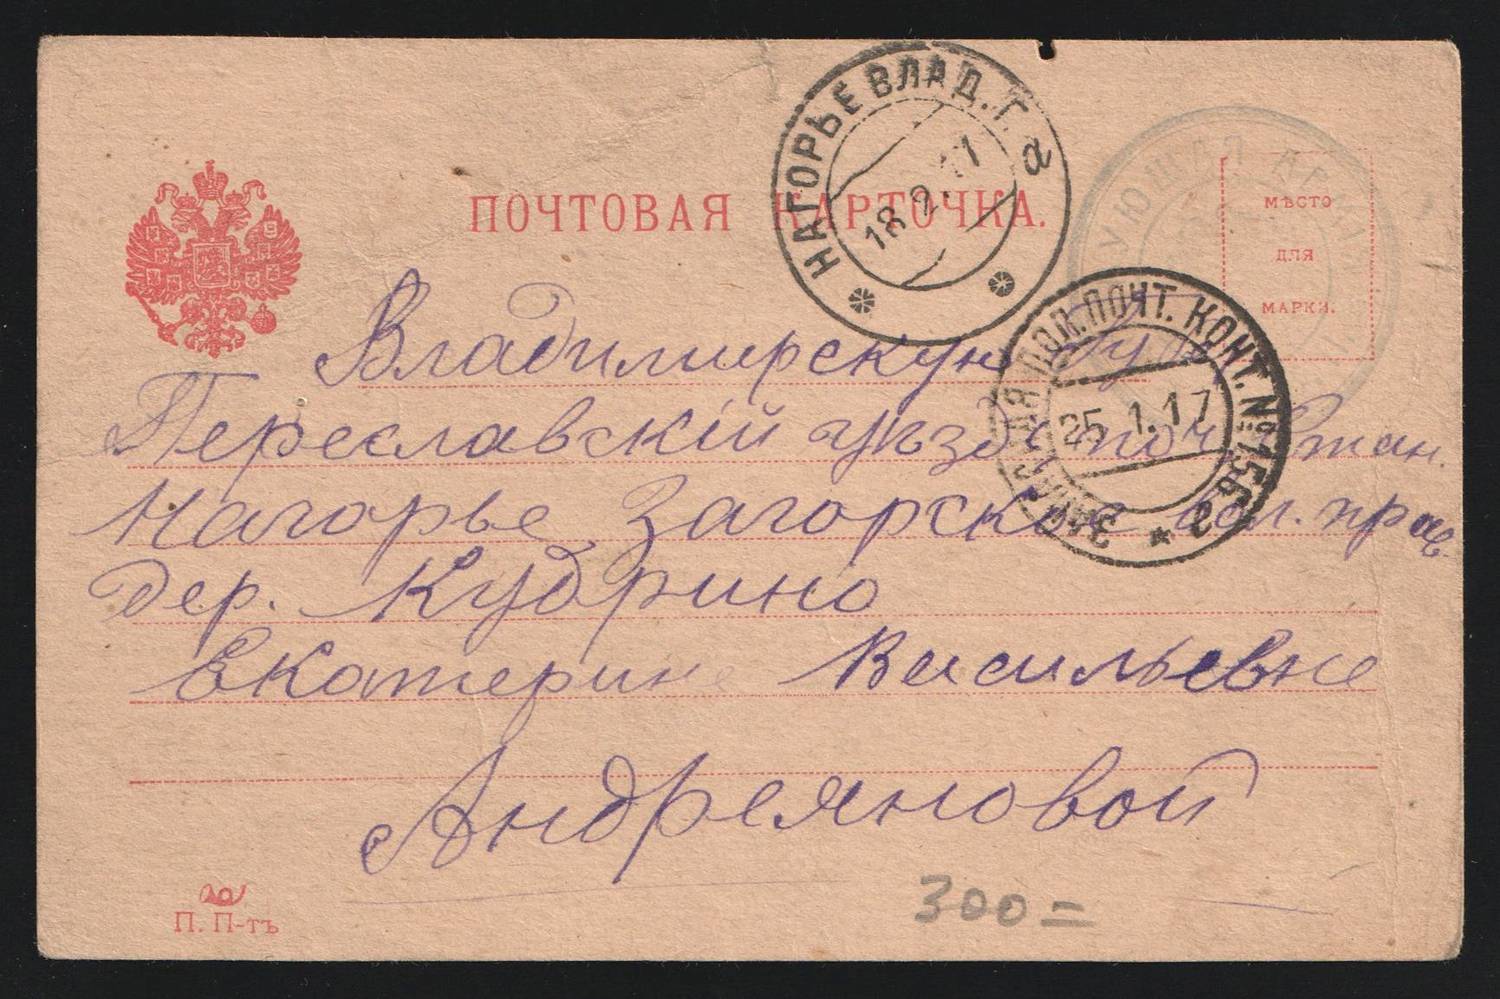 ПОЧТОВАЯ КАРТОЧКА.
НАГОРЬЕ ВЛАД. Г. а
18.2.17
МѢСТО
ДЛЯ
МАРКИ.
ПОЛ. ПОЧТ. КОНТ. № 156
25.1.17
Владимирскую Губ
Переславскій уѣзд поч. Стан.
Нагорье Загорское вол. прав.
дер. Кудрино
Екатерине Васильевне
Андреяновой
П. П-тъ
300=